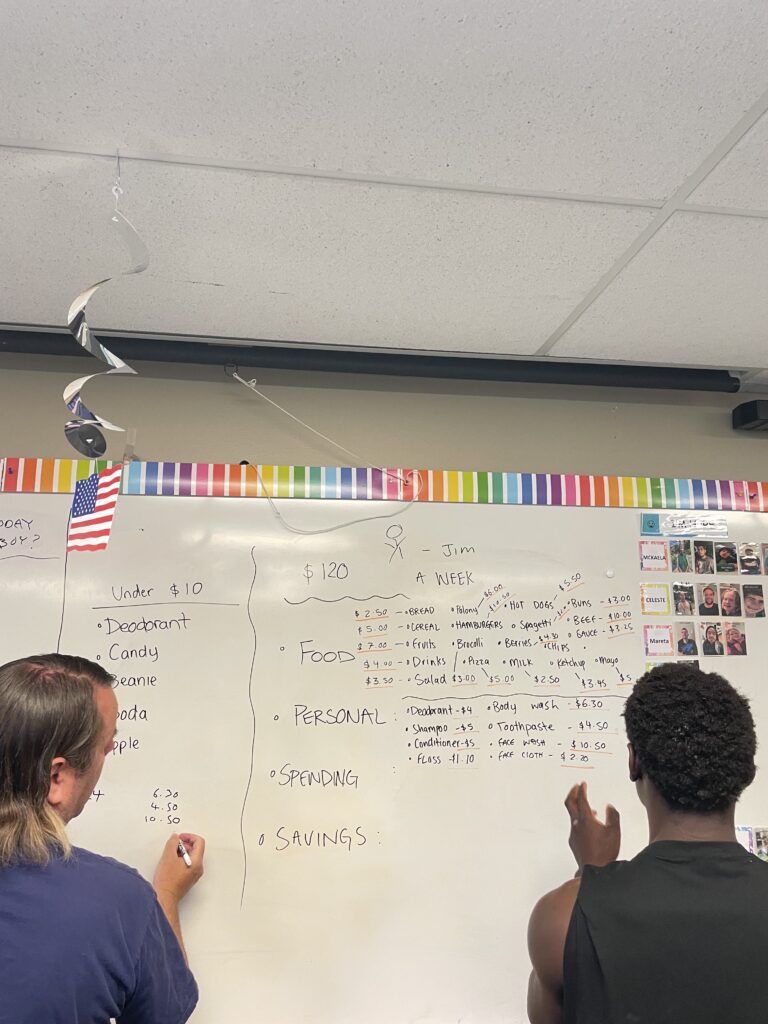 ODAY
BOY?
Under $10
• Deodorant
• Candy
Beanie
oda
pple
4
6.20
4.50
10.50
$120
- Jim
A WEEK
• FOOD
$2.50 - • BREAD • Polony $5.00 $10.50 • HOT DOGS $5.50 • Buns - $3.00
$5.00 - • CEREAL • HAMBURGERS • Spagetti • BEEF - $10.00
$7.00 - • Fruits • Brocolli • Berries - $4.30 • CHIPS • SAUCE - $3.25
$4.00 - • Drinks • Pizza • MILK • Ketchup • Mayo
$3.50 - • Salad $3.00 $5.00 $2.50 $3.45 $5
• PERSONAL :
• Deodorant - $4 • Body wash - $6.30
• Shampoo - $5 • Toothpaste - $4.50
• Conditioner - $5 • FACE WASH - $10.50
• FLOSS - $1.10 • FACE CLOTH - $2.20
• SPENDING :
• SAVINGS :
MCKAELA
CELESTE
Mareta